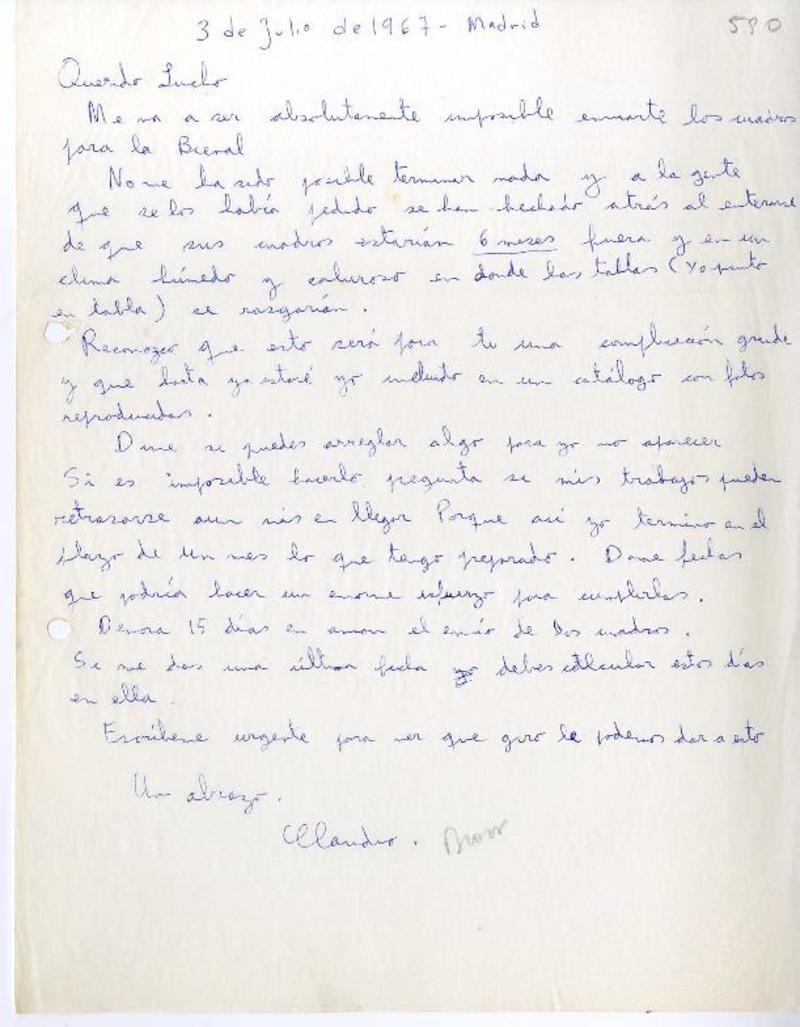 3 de Julio de 1967 - Madrid
590
Querido Lucho
Me va a ser absolutamente imposible enviarte los cuadros
para la Bienal
No me ha sido posible terminar nada y a la gente
que se los había pedido se han hechado atrás al enterarse
de que sus cuadros estarían 6 meses fuera y en un
clima húmedo y caluroso en donde las tablas (yo pinto
en tabla) se rasgarían.
Reconozco que esto será para ti una complicación grande
y que hasta ya estaré yo incluido en un catálogo con fotos
reproducidas.
Dime si puedes arreglar algo para yo no aparecer
Si es imposible hacerlo pregunta si mis trabajos pueden
retrasarse aun más en llegar Porque así yo termino en el
plazo de un mes lo que tengo preparado. Dame fechas
que podría hacer un enorme esfuerzo para cumplirlas.
Demora 15 días en avion el envío de los cuadros.
Si me das una última fecha debes calcular estos días
en ella.
Escríbeme urgente para ver que giro le podemos dar a esto
Un abrazo.
Claudio. Bravo